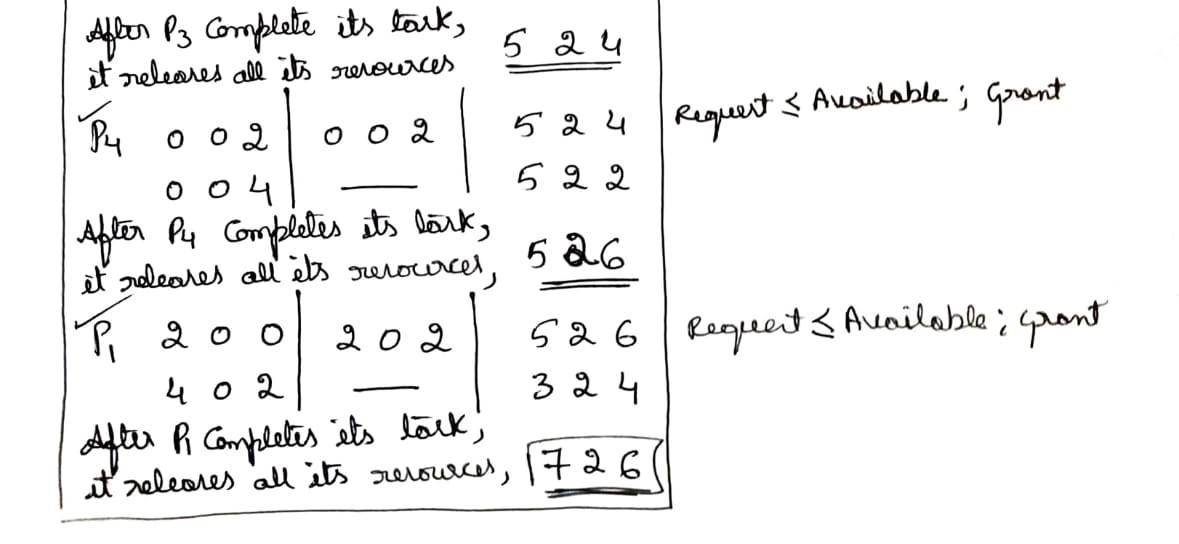 After P3 Complete its task,
it releases all its resources 5 2 4
P4 0 0 2 0 0 2 5 2 4 Request ≤ Available ; Grant
0 0 4 — 5 2 2
After P4 Completes its task,
it releases all its resources, 5 2 6
P1 2 0 0 2 0 2 5 2 6 Request ≤ Available ; grant
4 0 2 — 3 2 4
After P1 Completes its task,
it releases all its resources, 7 2 6